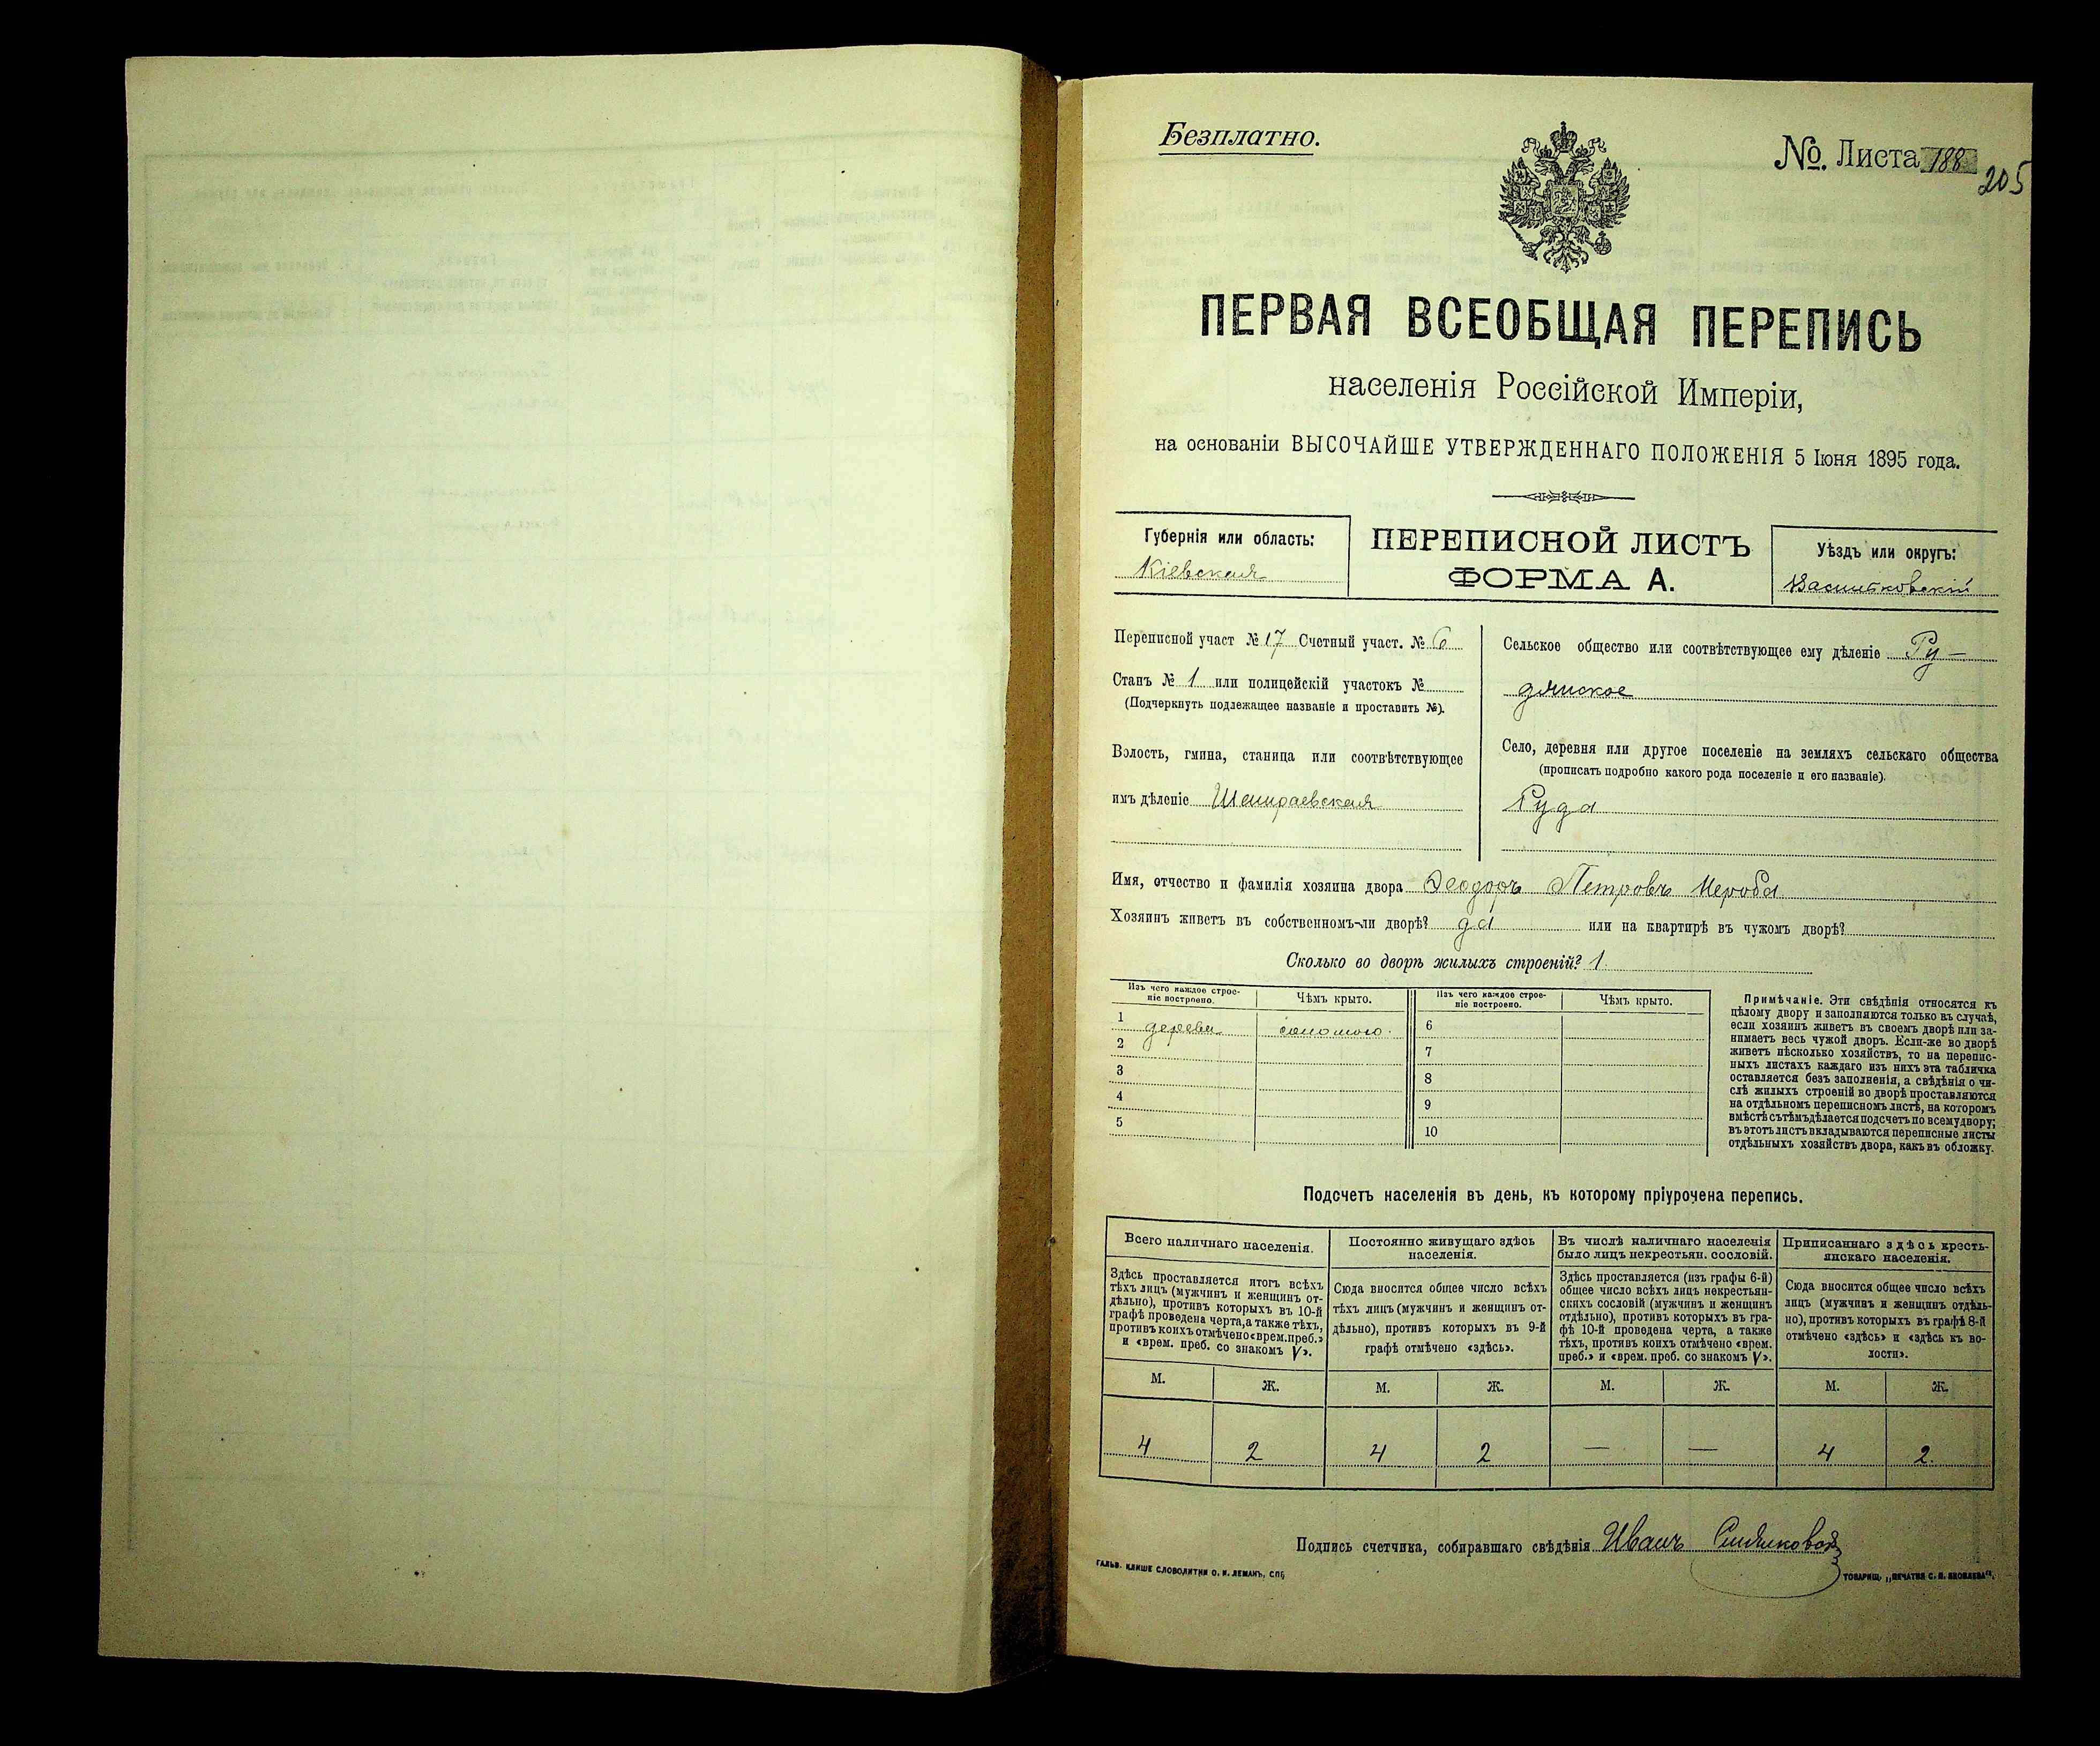 Безплатно.
№. Листа 188
205
ПЕРВАЯ ВСЕОБЩАЯ ПЕРЕПИСЬ
населенія Россійской Имперіи,
на основаніи ВЫСОЧАЙШЕ УТВЕРЖДЕННАГО ПОЛОЖЕНІЯ 5 Іюня 1895 года.
Губернія или область:
Кіевская
ПЕРЕПИСНОЙ ЛИСТЪ
ФОРМА А.
Уѣздъ или округъ:
Васильковскій
Переписной участ № 17 Счетный участ. № 6
Станъ № 1 или полицейскій участокъ №
(Подчеркнуть подлежащее названіе и проставить №).
Волость, гмина, станица или соотвѣтствующее
имъ дѣленіе
Сельское общество или соотвѣтствующее ему дѣленіе Ру-
дянское
Село, деревня или другое поселеніе на земляхъ сельскаго общества
(прописать подробно какого рода поселеніе и его названіе).
Руда
Имя, отчество и фамилія хозяина двора Ѳеодоръ Петровъ
Хозяинъ живетъ въ собственномъ-ли дворѣ? да или на квартирѣ въ чужомъ дворѣ?
Сколько во дворѣ жилыхъ строеній? 1
Изъ чего каждое строе-
ніе построено.
Чѣмъ крыто.
Изъ чего каждое строе-
ніе построено.
Чѣмъ крыто.
1 дерева соломою.
2
3
4
5
6
7
8
9
10
Примѣчаніе. Эти свѣдѣнія относятся къ
цѣлому двору и заполняются только въ случаѣ,
если хозяинъ живетъ въ своемъ дворѣ или за-
нимаетъ весь чужой дворъ. Если-же во дворѣ
живетъ нѣсколько хозяйствъ, то на перепис-
ныхъ листахъ каждаго изъ нихъ эта табличка
оставляется безъ заполненія, а свѣдѣнія о чи-
слѣ жилыхъ строеній во дворѣ проставляются
на отдѣльномъ переписномъ листѣ, на которомъ
вмѣстѣ съ тѣмъ дѣлается подсчетъ по всему двору;
въ этотъ листъ вкладываются переписные листы
отдѣльныхъ хозяйствъ двора, какъ въ обложку.
Подсчетъ населенія въ день, къ которому пріурочена перепись.
Всего наличнаго населенія.
Здѣсь проставляется итогъ всѣхъ
тѣхъ лицъ (мужчинъ и женщинъ от-
дѣльно), противъ которыхъ въ 10-й
графѣ проведена черта, а также тѣхъ,
противъ коихъ отмѣчено «врем. преб.»
и «врем. преб. со знакомъ V».
Постоянно живущаго здѣсь
населенія.
Сюда вносится общее число всѣхъ
тѣхъ лицъ (мужчинъ и женщинъ от-
дѣльно), противъ которыхъ въ 9-й
графѣ отмѣчено «здѣсь».
Въ числѣ наличнаго населенія
было лицъ некрестьян. сословій.
Здѣсь проставляется (изъ графы 6-й)
общее число всѣхъ лицъ некрестьян-
скихъ сословій (мужчинъ и женщинъ
отдѣльно), противъ которыхъ въ гра-
фѣ 10-й проведена черта, а также
тѣхъ, противъ коихъ отмѣчено «врем.
преб.» и «врем. преб. со знакомъ V».
Приписаннаго здѣсь кресть-
янскаго населенія.
Сюда вносится общее число всѣхъ
лицъ (мужчинъ и женщинъ отдѣль-
но), противъ которыхъ въ графѣ 8-й
отмѣчено «здѣсь» и «здѣсь къ во-
лости».
М. Ж. М. Ж. М. Ж. М. Ж.
4 2 4 2 — — 4 2.
Подпись счетчика, собиравшаго свѣдѣнія Иванъ
ГАЛЬВ. КЛИШЕ СЛОВОЛИТНИ О. И. ЛЕМАНЪ, СПБ.
ТОВАРИЩ. „ПЕЧАТНЯ С. П. ЯКОВЛЕВА".